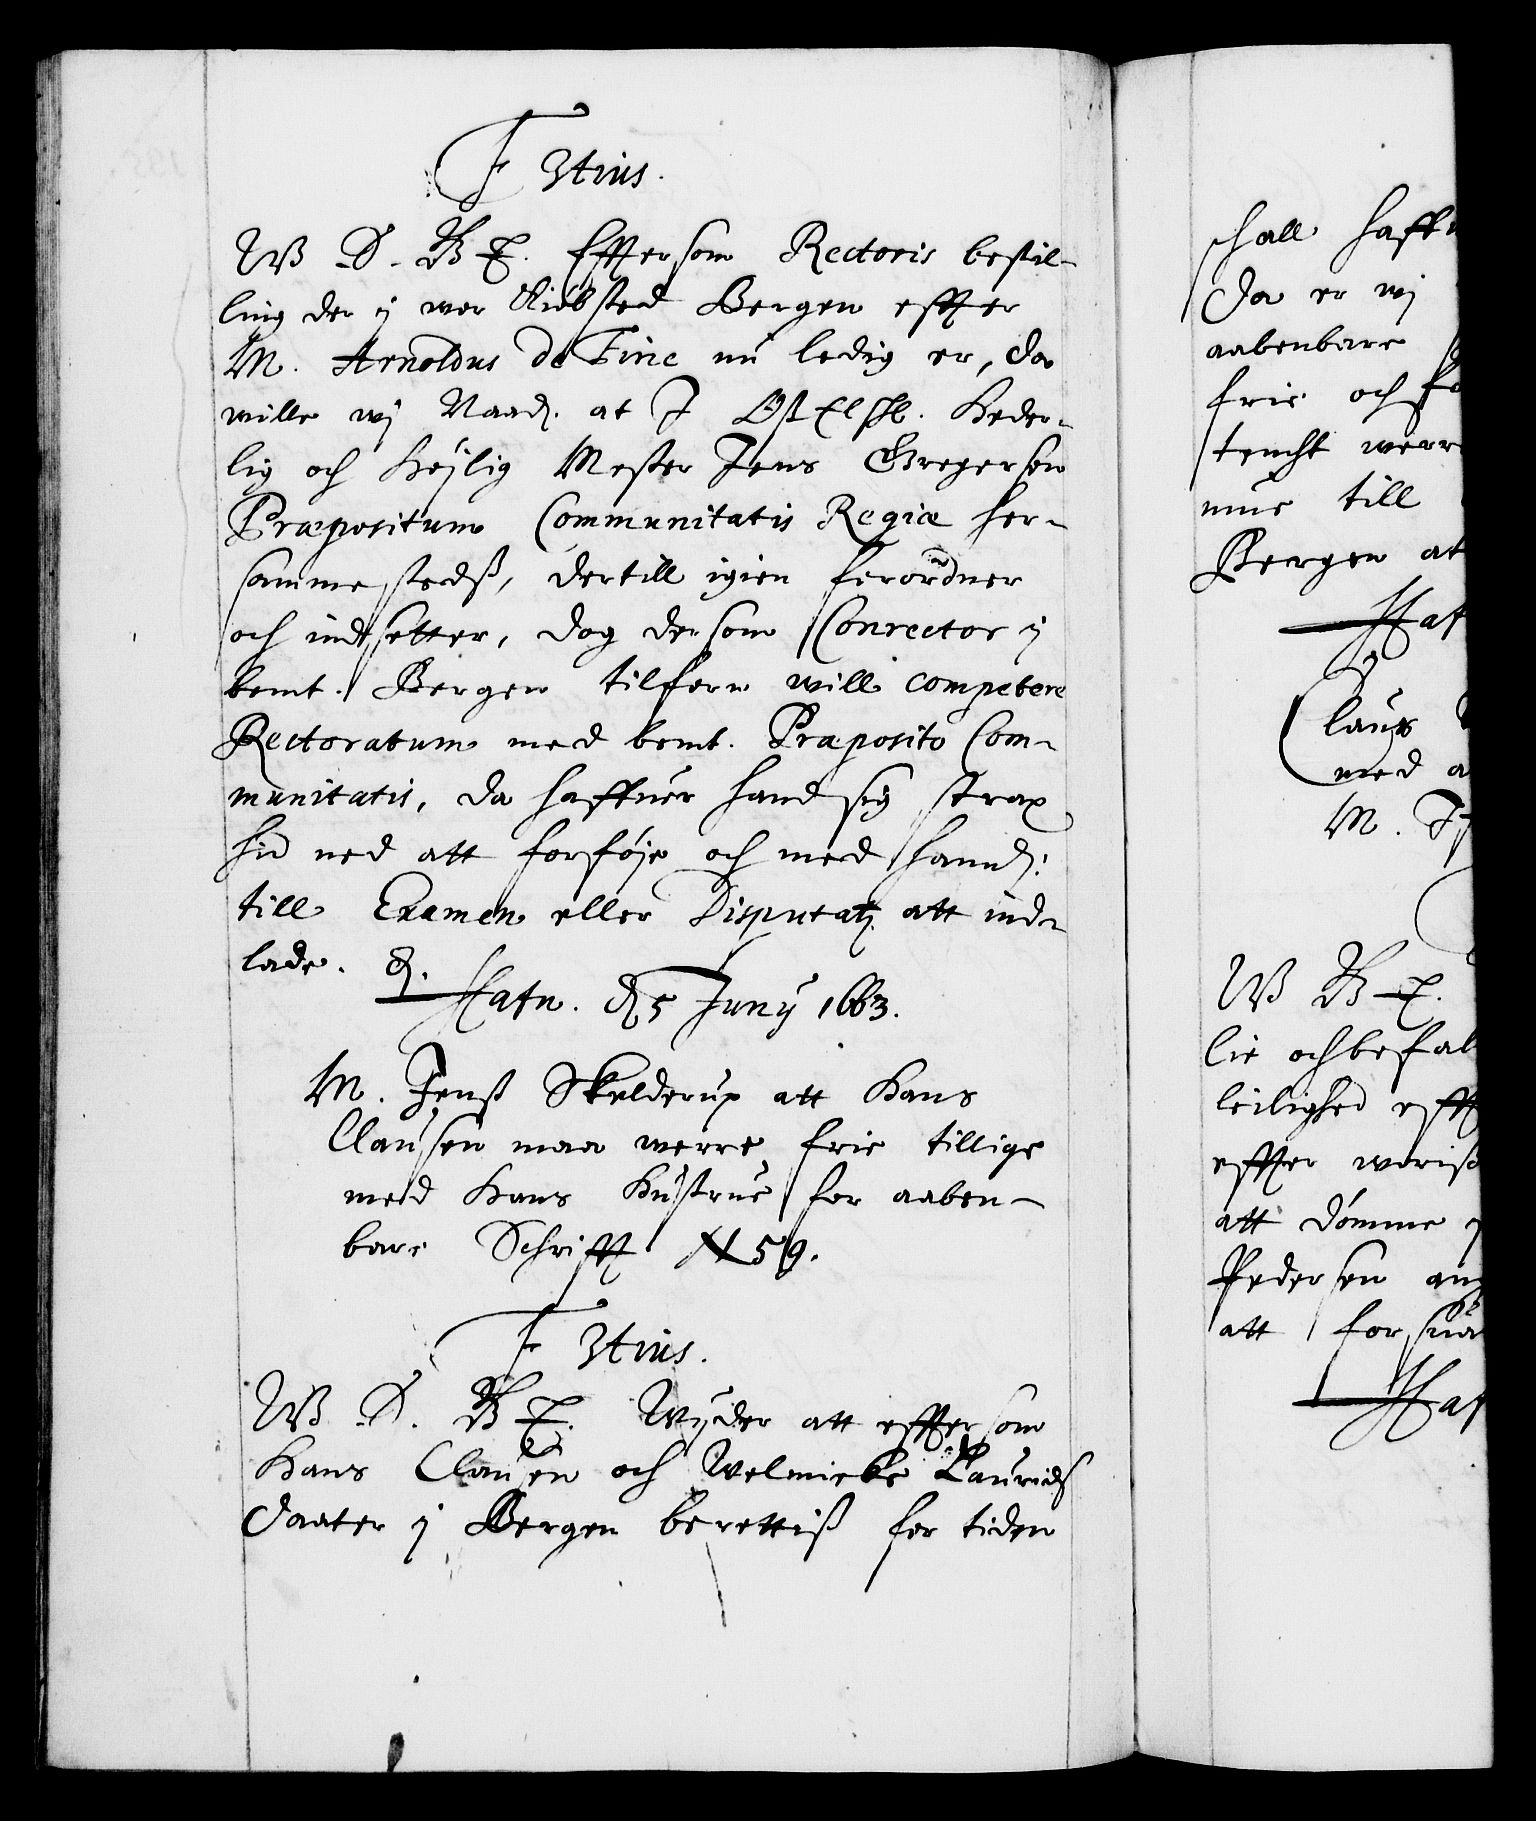 F 3tius.
W S. G T. Efftersom Rectoris bestil-
ling der ÿ wor Kiøbsted Bergen effter
M. Arnoldus de Fine nu ledig er, da
wille wj Naad. at I Oß Elskl. Heder-
lig och Høylig Mester Jens Gregersen
Præpositum Communitatis Regiæ her-
sammestedß, dertill igien forordner
och indsetter, dog dersom Conrector ÿ
bemt. Bergen tilforn will competere
Rectoratum med bemt. Præposito Com-
munitatis, da haffuer hand sig strax
hid ned att forføje och med hannd.
till Examen eller Disputatz att ind-
lade. &.
Hafn. d 5 Junÿ 1663.
M. Jenß Skelderup att Hans
Clausen maa werre frie tillige
med Hans Hustrue for aaben-
bare Schrifft N 59.
F 3tius.
W S. G T. Wÿder att efftersom
Hans Clausen och Welmicke Laurids
Daater ÿ Bergen berettiß for tiden
schall haff
Da er wj
aabenbare
frie och fo
tencht werr
mue till
Bergen at
Haf
Claus
med a
M. J
W G T.
lie och befal
leilighed efft
effter woriß
att dømme ÿ
Pedersen an
att forsua
Haf